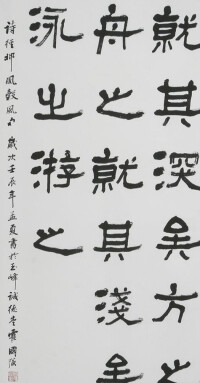 就其深矣方之
舟之就其淺矣
泳之游之
詩經邶風穀風句 歲次壬辰年孟夏書於玉峰